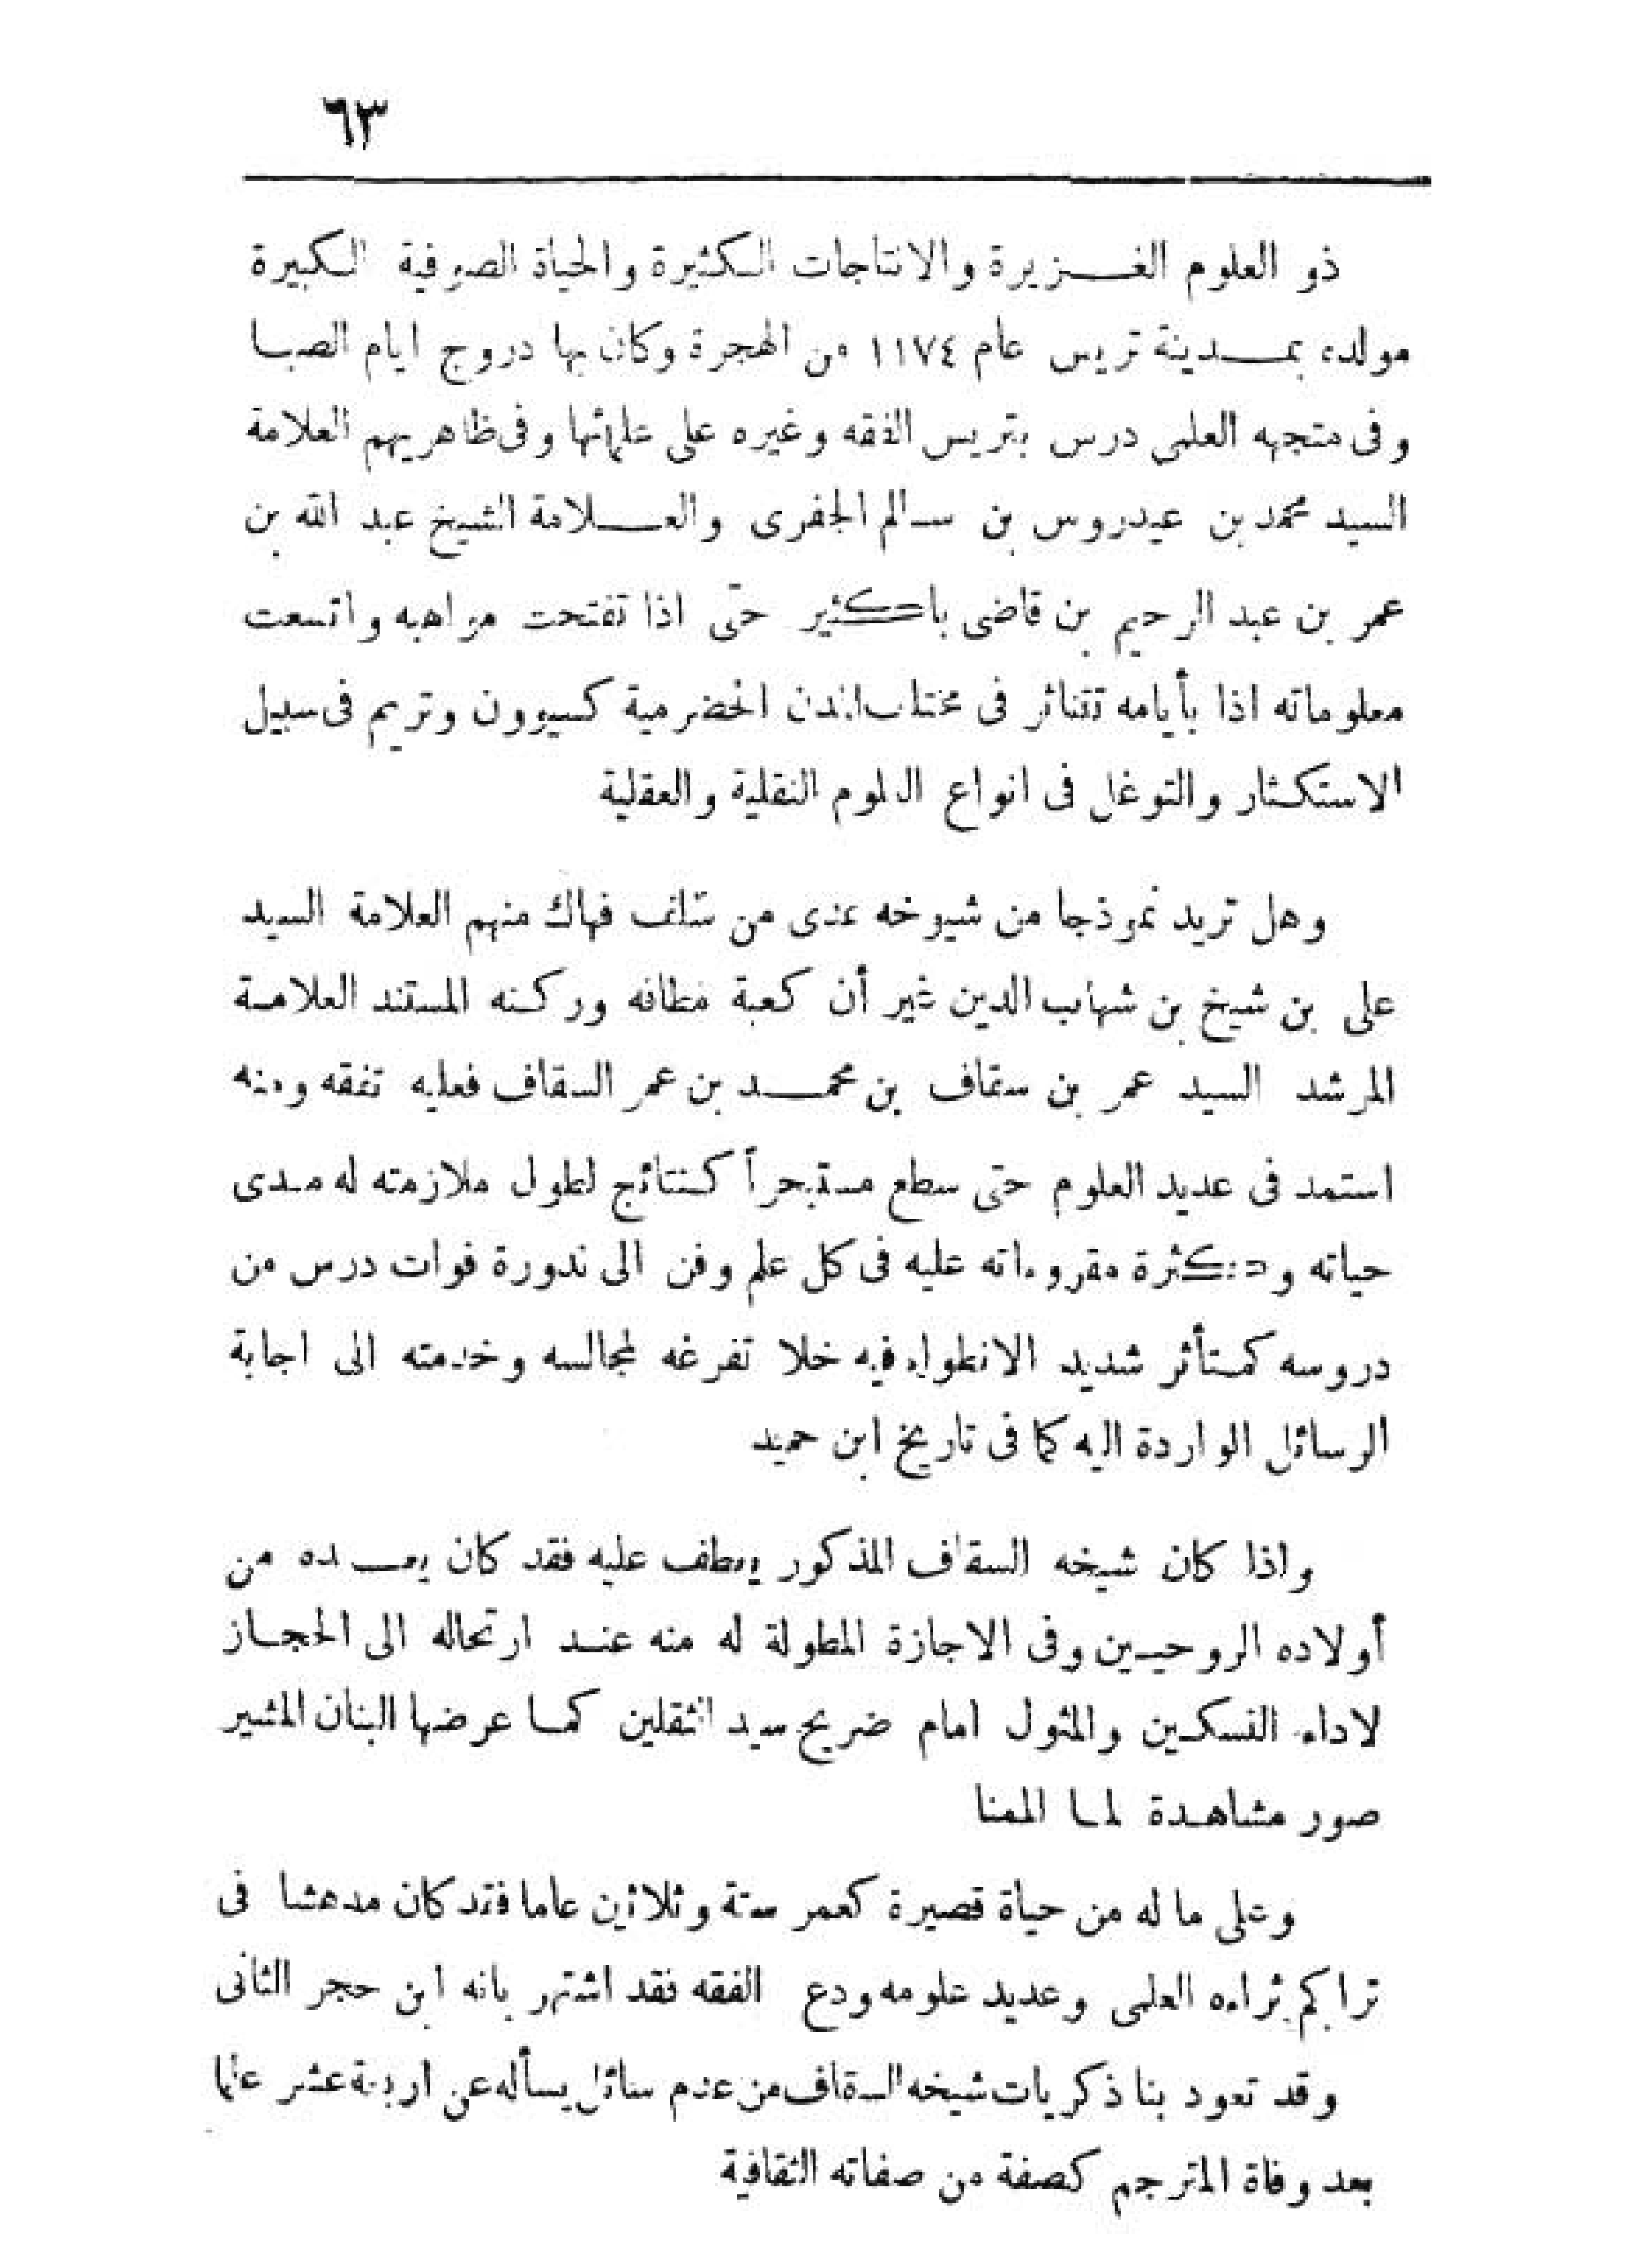 ٦٣
ذو العلوم الغزيرة والانتاجات الكثيرة والحياة الصوفية الكبيرة
مولده بمدينة تريس عام ١١٧٤ من الهجرة وكان بها دروج ايام الصبا
وفى متجهه العلمى درس بتريس الفقه وغيره على علمائها وفى ظاهريهم العلامة
السيد محمد بن عيدروس بن سالم الجفرى والعلامة الشيخ عبد الله بن
عمر بن عبد الرحيم بن قاضى باكثير حتى اذا تفتحت مواهبه واتسعت
معلوماته اذا بأيامه تتناثر فى مختلف المدن الحضرمية كسيوون وتريم فى سبيل
الاستكثار والتوغل فى انواع العلوم النقلية والعقلية
وهل تريد نموذجا من شيوخه عدى من سلف فهاك منهم العلامة السيد
على بن شيخ بن شهاب الدين غير أن كعبة مطافه وركنه المستند العلامة
المرشد السيد عمر بن سقاف بن محمد بن عمر السقاف فعليه تفقه ومنه
استمد فى عديد العلوم حتى سطع مستبحراً كنتائج لطول ملازمته له مدى
حياته و مقروءاته عليه فى كل علم وفن الى ندورة فوات درس من
دروسه كمتأثر شديد الانطواء فيه خلا تفرغه لمجالسه وخدمته الى اجابة
الرسائل الواردة اليه كما فى تاريخ ابن حميد
واذا كان شيخه السقاف المذكور يعطف عليه فقد كان يعده من
أولاده الروحيين وفى الاجازة المطولة له منه عند ارتحاله الى الحجاز
لاداء النسكين والمثول امام ضريح سيد الثقلين كما عرضها البنان المشير
صور مشاهدة لما المعنا
وعلى ما له من حياة قصيرة كعمر ستة وثلاثين عاما فقد كان مدهشا فى
تراكم ثراءه العلمى وعديد علومه ودع الفقه فقد اشتهر بانه ابن حجر الثانى
وقد تعود بنا ذكريات شيخه السقاف من عدم سائل يسأله عن اربعة عشر علما
بعد وفاة المترجم كصفة من صفاته الثقافية